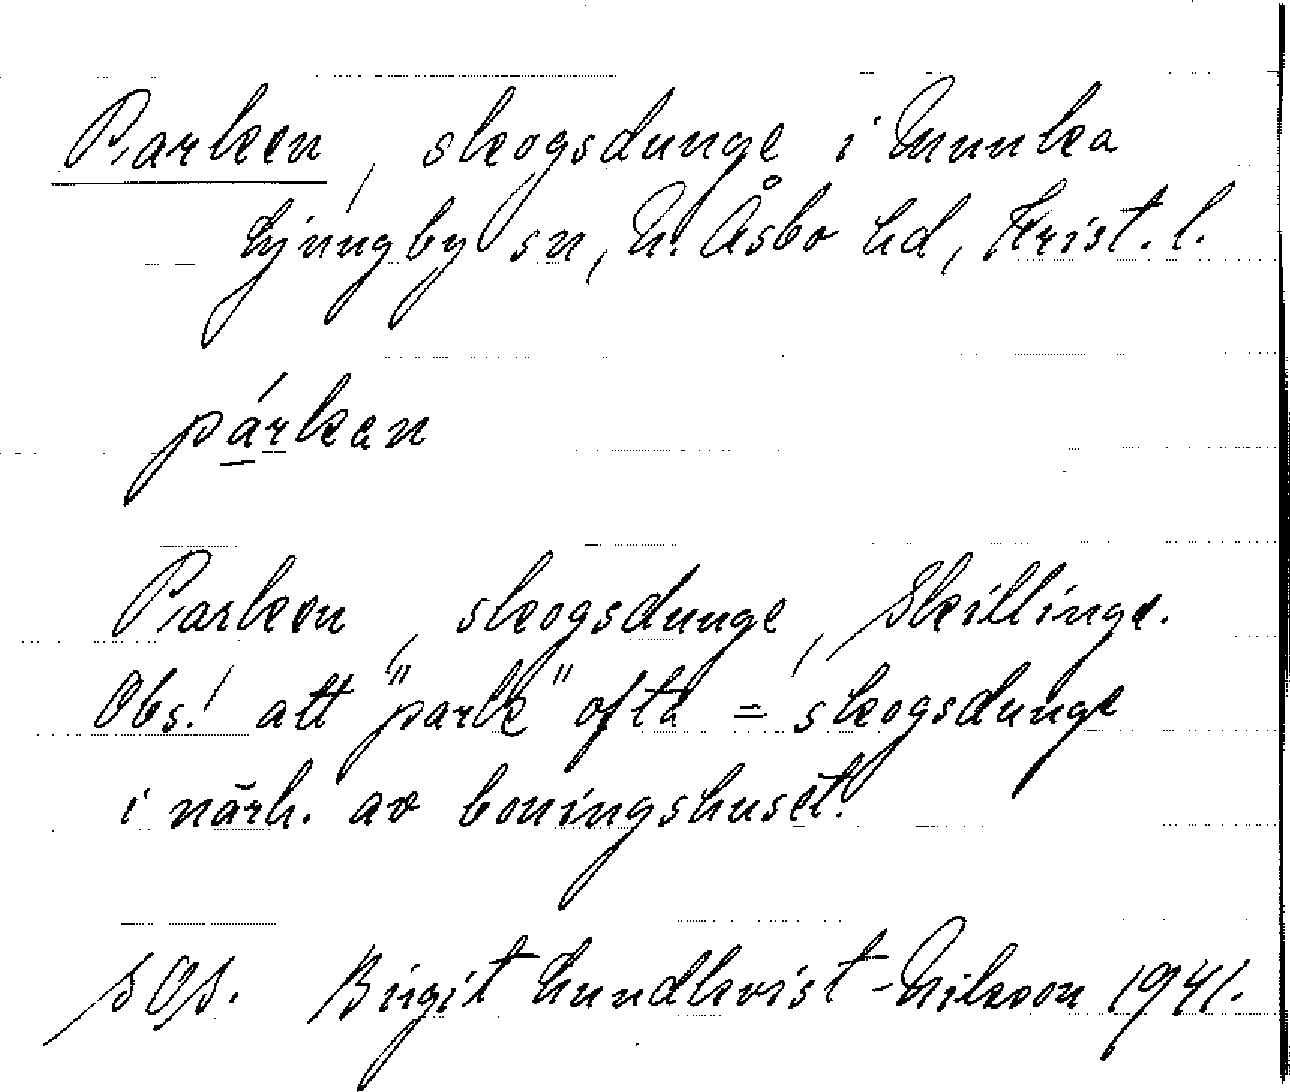 Parken, skogsdunge i Munka
Ljungby sn, N. Åsbo hd, Krist. l.
párkan
Parken, skogsdunge, Skillinge.
Obs.! att "park" ofta = skogsdunge
i närh. av boningshuset.
SOS. Birgit Lundkvist-Nilsson 1941.